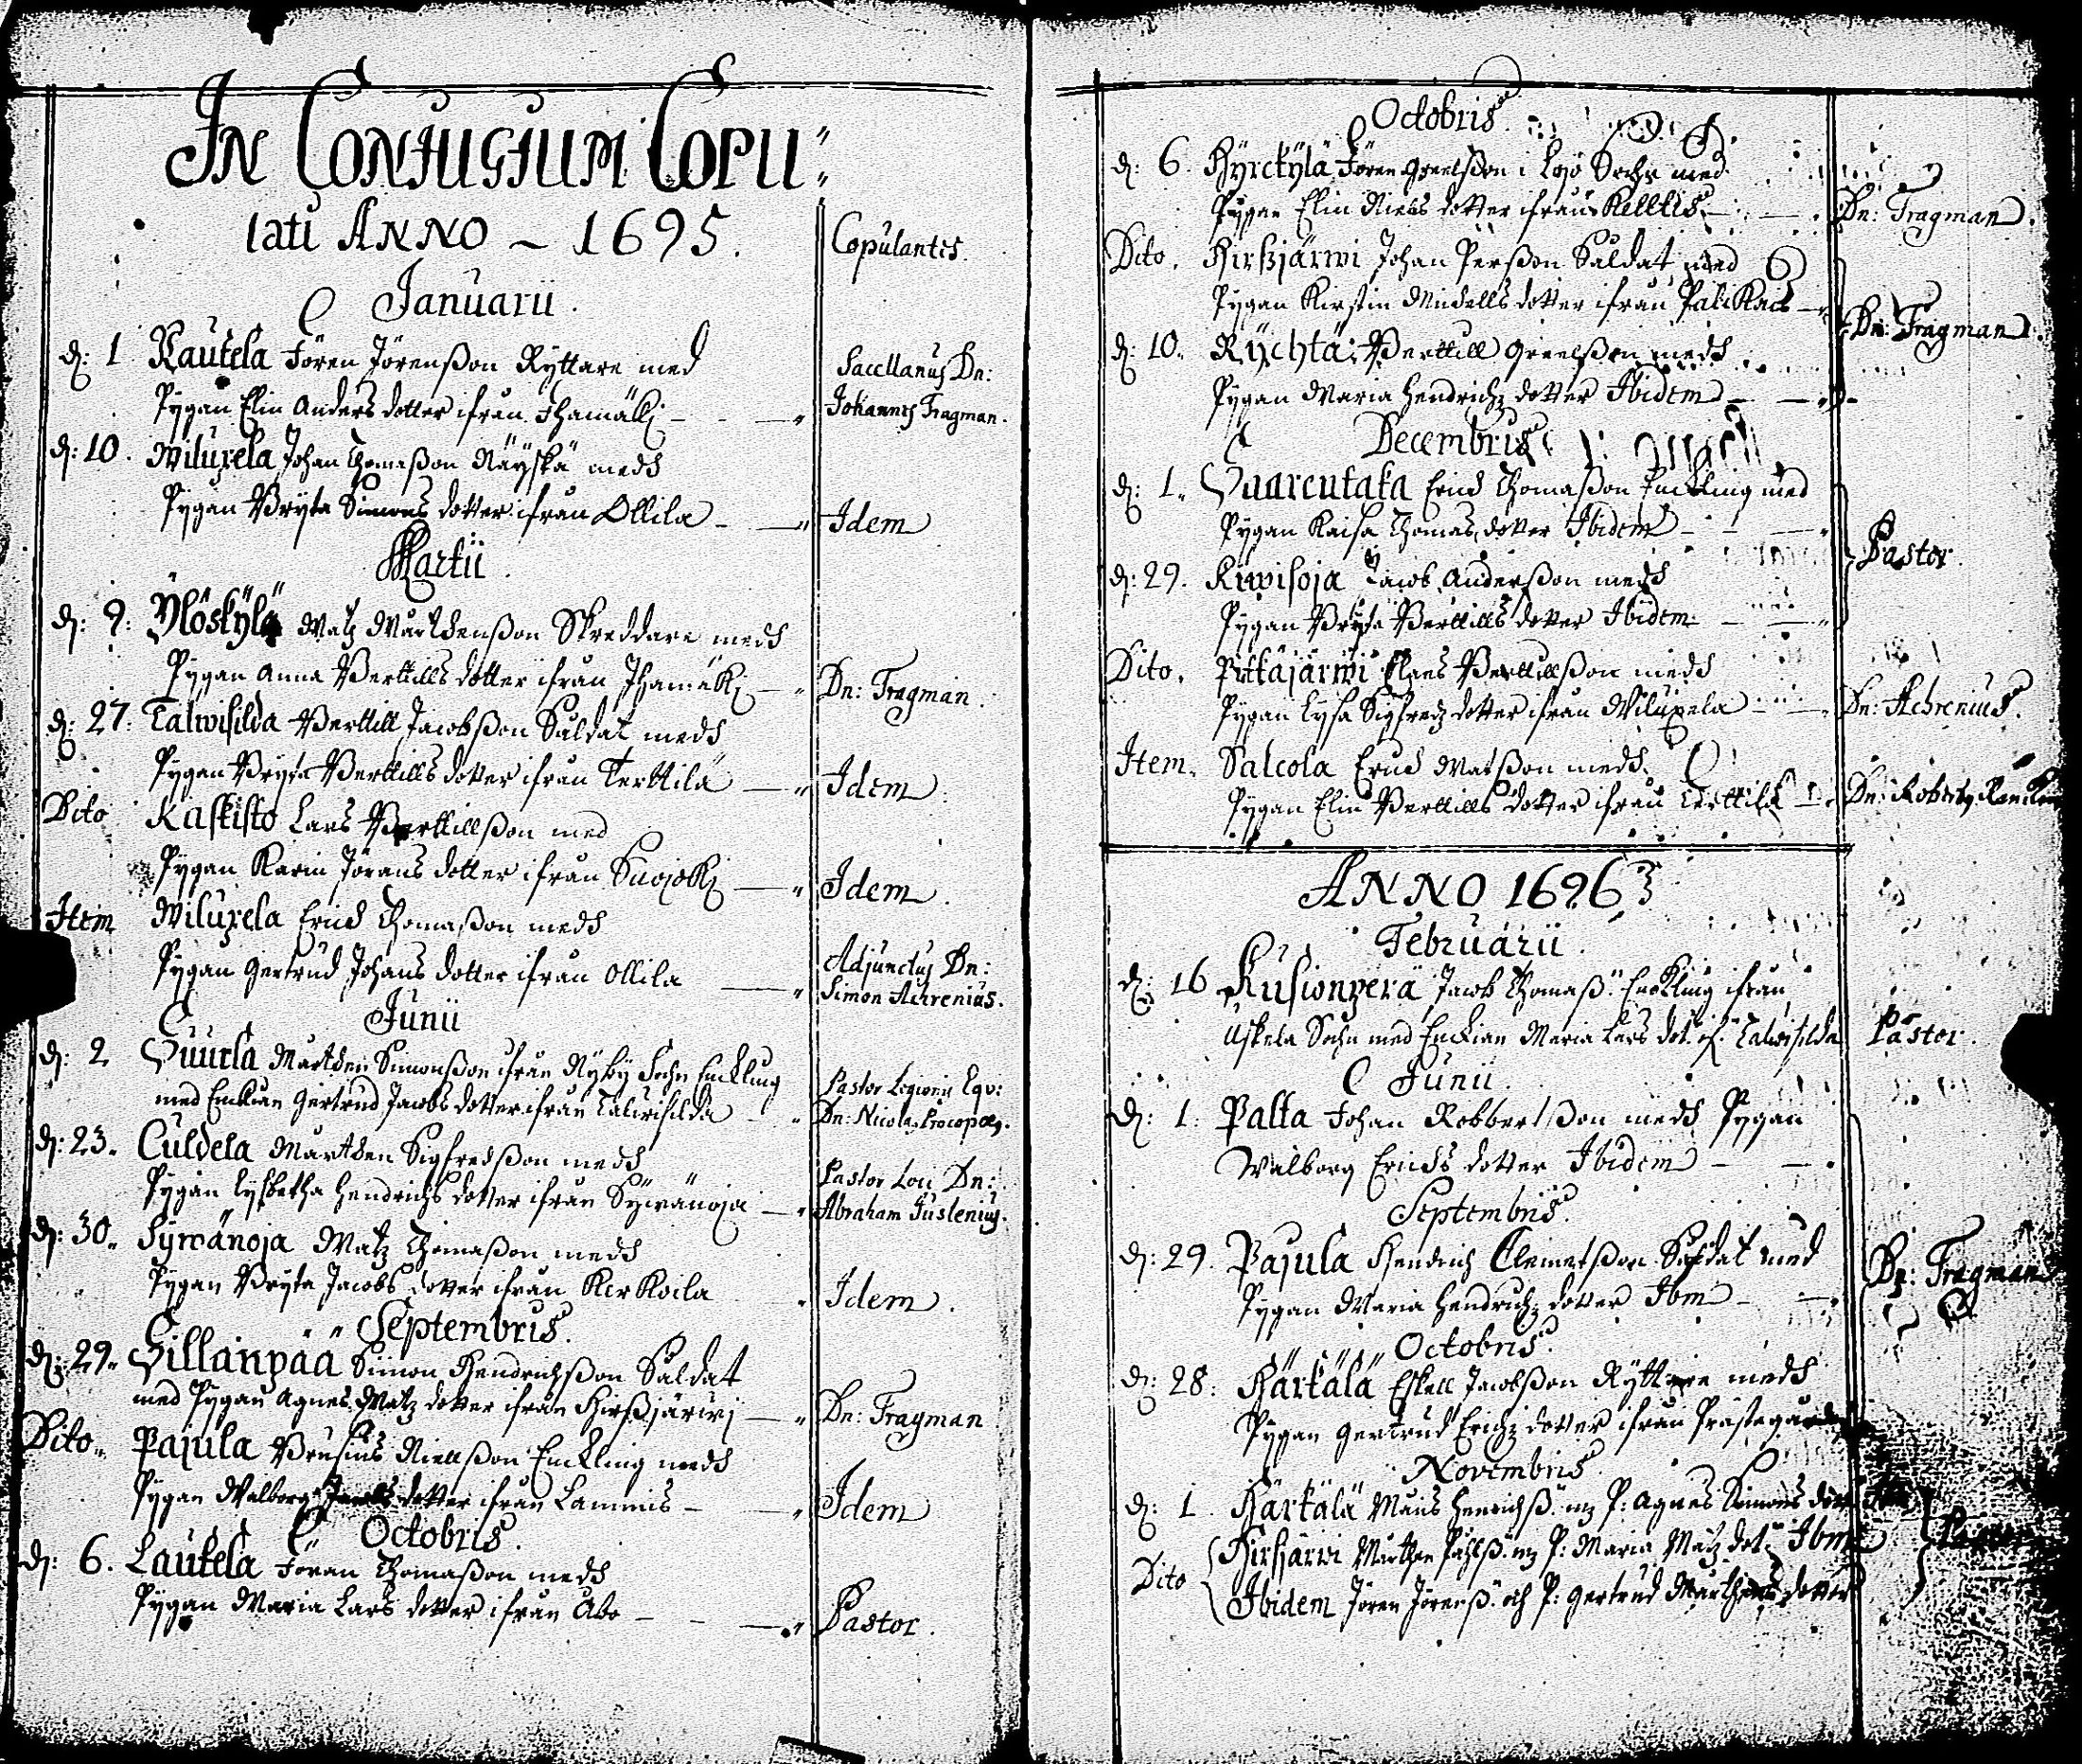 IN CONIUGIUM COPU:
lati ANNO – 1695.
Copulantes.
Januarii.
d: 1 Kautela Jören Jörenßon Ryttare med
Sacellanus Dn:
Pygan Elin Anders dotter ifrån Ihamäkj
Johannes Fragman.
d: 10. Wiluxela Johan Thomaßon Näyskä medh
Pygan Bryta Simons dotter ifrån Ollila
Idem
Martii.
d: 9. Ylöskylä Matz Mårtdenßon Skreddare medh
Pygan Anna Bertills dotter ifrån Ihamäkj
Dn: Fragman.
d: 27. Talwisilda Bertill Jacobßon Såldat medh
Pygan Bryta Bertills dotter ifrån Terttilä
Idem
Dito Kaskisto Lars Bertillßon med
Pygan Karin Jörans dotter ifrån Suojokj
Idem.
Item Wiluxela Erich Thomaßon medh
Pygan Gertrud Johans dotter ifrån Ollila
Adjunctus Dn:
Simon Achrenius.
Junii
d: 2 Suurla Mårtden Simonßon ifrån Nykÿ Sochn Enckling
Pastor Legionis Eqv:
med Enckian Gertrud Jacobs dotter ifrån Talwisilda
Dn: Nicola, Procopæ,.
d: 23. Culdela Mårtden Sigfredßon medh
Pastor Loci Dn:
Pygan Lysbetha Hendrichs dotter ifrån Sywänoja
Abraham Juslenius.
d: 30. Sywänoja Matz Thomaßon medh
Pygan Bryta Jacobs dotter ifrån Kirkoila
Idem.
Septembris.
d: 29. Sillänpää Simon Hendrichßon Såldat
med Pygan Agnes Matz dotter ifrån Hirßjärwj
Dn: Fragman
Dito. Pajula Brusius Nielßon Enckling medh
Pygan Walborg dotter ifrån Lammis
Idem
Octobris.
d: 6. Lautela Jöran Thomaßon medh
Pygan Maria Lars dotter ifrån Åbo
Pastor.
Octobris.
d: 6. Hyrckylä Jören Greelßon i Lojo Sochn med
Pygan Elin Niels dotter ifrån Kelltis
Dn: Fragman.
Dito. Hirßjärwi Johan Perßon Såldat med
Pygan Kirstin Michells dotter ifrån Palikais
Dn: Fragman.
d: 10. Rychtä Bertill Greelßon medh
Pygan Maria Hendrichz dotter Ibidem
Decembris
d: 1. Suarentaka Erich Thomaßon Enckling med
Pygan Kaisa Thomas dotter Ibidem
Pastor.
d: 29. Kiwisoja Jacob Anderßon medh
Pygan Bryta Bertills dotter Ibidem
Dito. Pitkäjärwi Claes Bertillßon medh
Pygan Lysa Sigfredz dotter ifrån Wiluxela
Dn: Achrenius.
Item. Salcola Erich Matßon medh
Pygan Elin Bertills dotter ifrån Terttilä
Dn: Robertz
ANNO 1696
Februarii.
d: 16 Kusionperä Jacob Thomaß: Enckling ifrån
Uskela Sochn med Enckian Maria Lars dot. if. Talwisilda
Pastor.
Junii.
d: 1. Palta Johan Robbertßon medh Pygan
Walborg Erichs dotter Ibidem
Septembris.
d: 29. Pajula Hendrich Clemetßon Såldat med
Pygan Maria Hendrichz dotter Ibm
Dn: Fragman
Octobris.
d: 28. Härkälä Eskell Jacobßon Ryttare medh
Pygan Gertrud Erichz dotter ifrån Prästegården
Novembris
d: 1. Härkälä Måns Henrichß: mz P: Agnes Simons dott.
Dito Hirsjärwi Mårthen Påhlß. mz P: Maria Matz dot: Ibm
Ibidem Jören Jörenß. och P: Gertrud Mårthens dotter